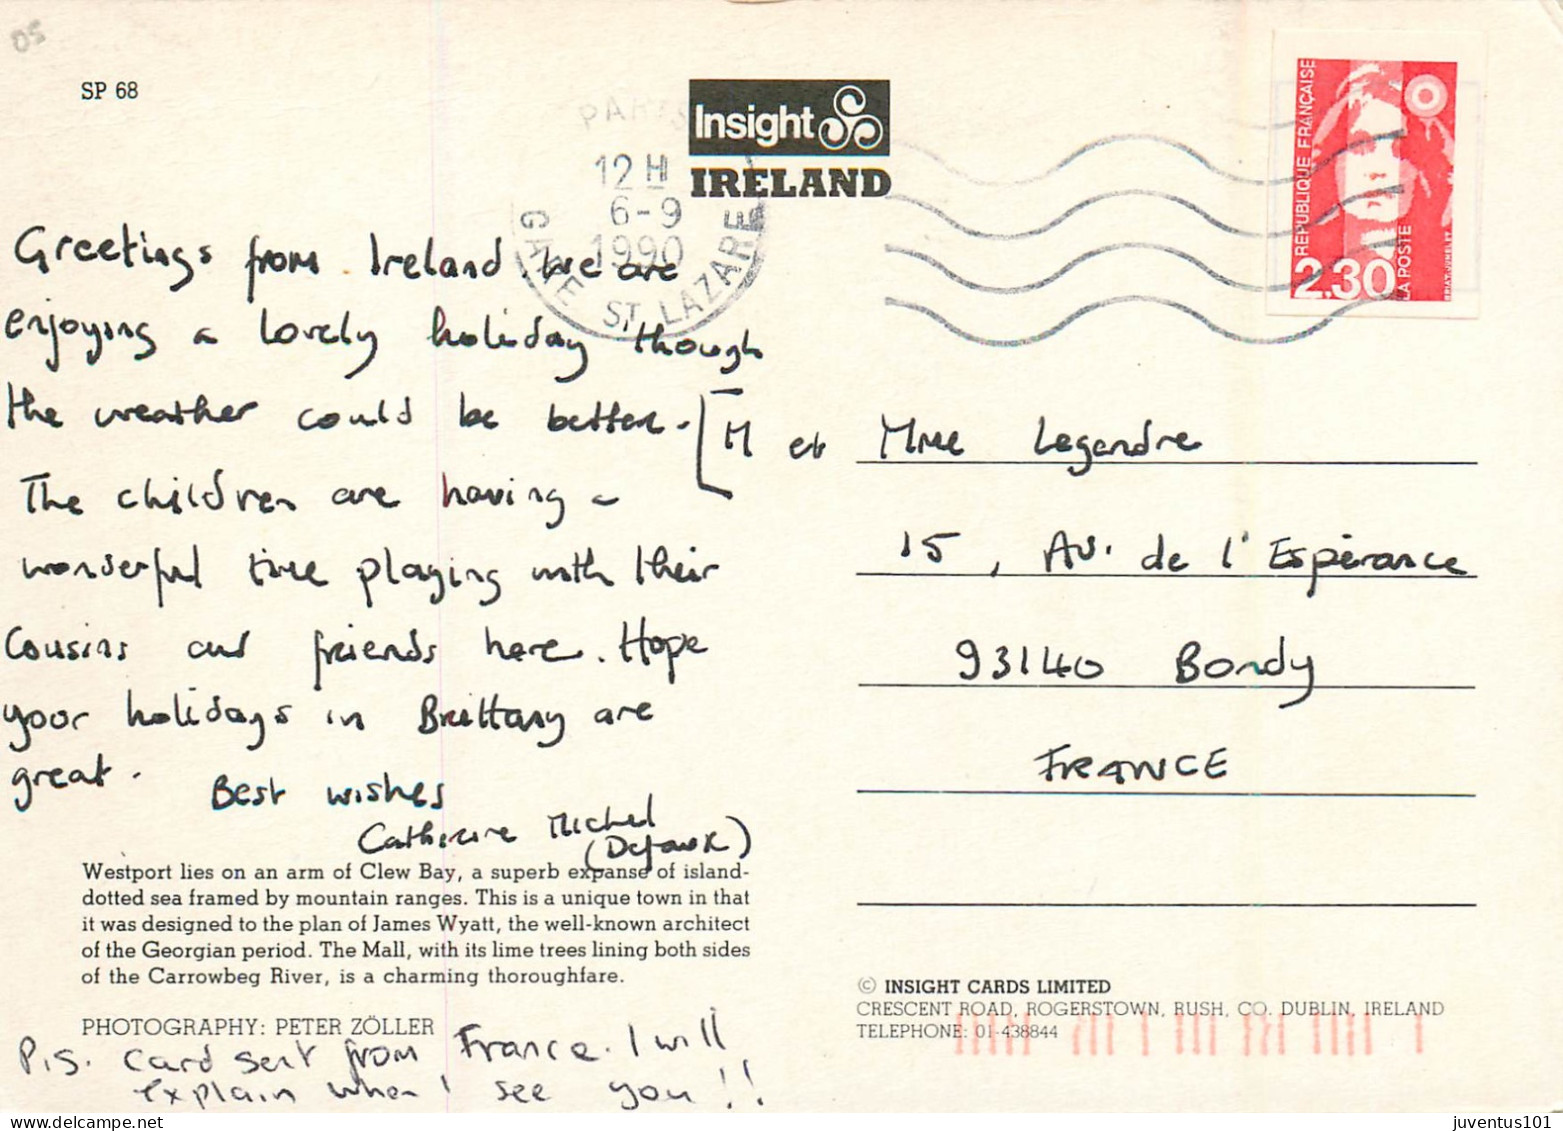 05
SP 68
Insight
IRELAND
PARIS
12 H
6-9
1990
GARE ST LAZARE
REPUBLIQUE FRANÇAISE
2.30
LA POSTE
Greetings from Ireland. We are
enjoying a lovely holiday though
the weather could be better.
The children are having a
wonderful time playing with their
cousins and friends here. Hope
your holidays in Brittany are
great.
Best wishes
Catherine Michel
M et Mme Legendre
15, Av. de l'Espérance
93140 Bondy
FRANCE
Westport lies on an arm of Clew Bay, a superb expanse of island-
dotted sea framed by mountain ranges. This is a unique town in that
it was designed to the plan of James Wyatt, the well-known architect
of the Georgian period. The Mall, with its lime trees lining both sides
of the Carrowbeg River, is a charming thoroughfare.
PHOTOGRAPHY: PETER ZÖLLER
P.S. Card sent from France. I will
explain when I see you!!
© INSIGHT CARDS LIMITED
CRESCENT ROAD, ROGERSTOWN, RUSH, CO. DUBLIN, IRELAND
TELEPHONE: 01-438844
juventus101